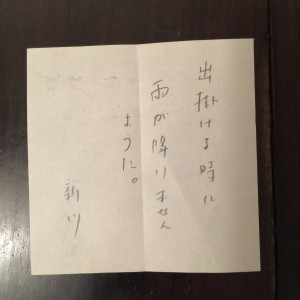 出掛ける時に
雨が降りません
ように。
新川